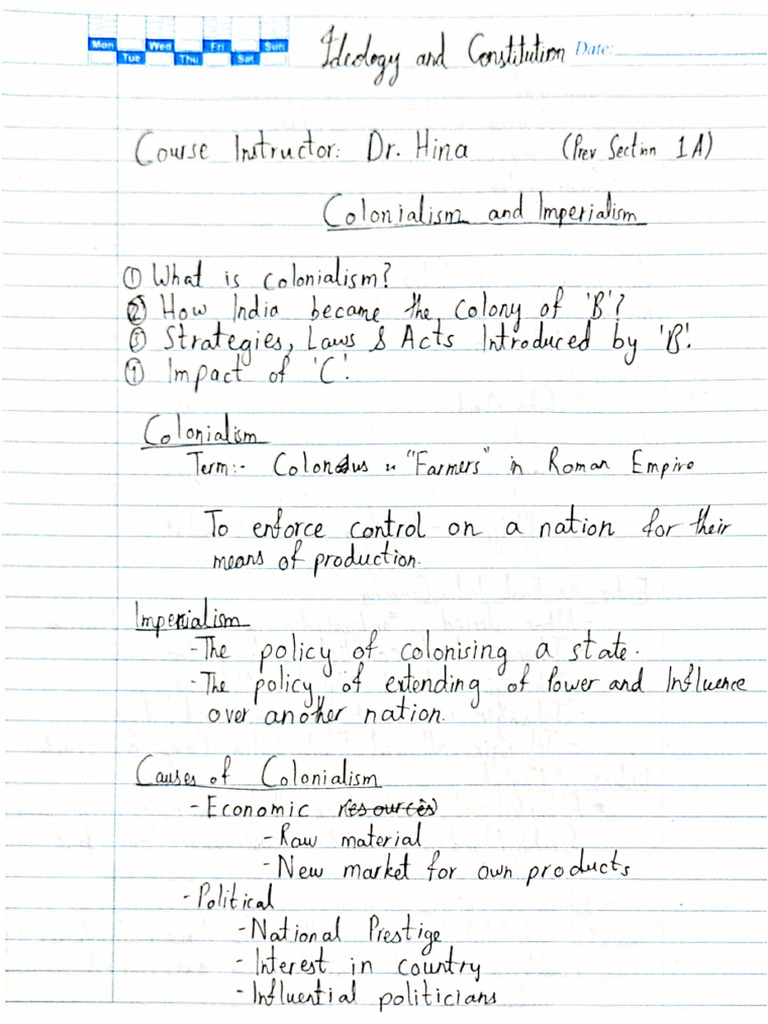 Mon Tue Wed Thu Fri Sat Sun
Ideology and Constitution Date:
Course Instructor: Dr. Hina (Prev Section 1A)
Colonialism and Imperialism
① What is colonialism?
② How India became the colony of 'B'?
③ Strategies, Laws & Acts Introduced by 'B'.
④ Impact of 'C'.
Colonialism
Term:- Colonus "Farmers" in Roman Empire
To enforce control on a nation for their
means of production.
Imperialism
- The policy of colonising a state.
- The policy of extending of Power and Influence
over another nation.
Causes of Colonialism
- Economic resources
- Raw material
- New market for own products
- Political
- National Prestige
- Interest in country
- Influential politicians